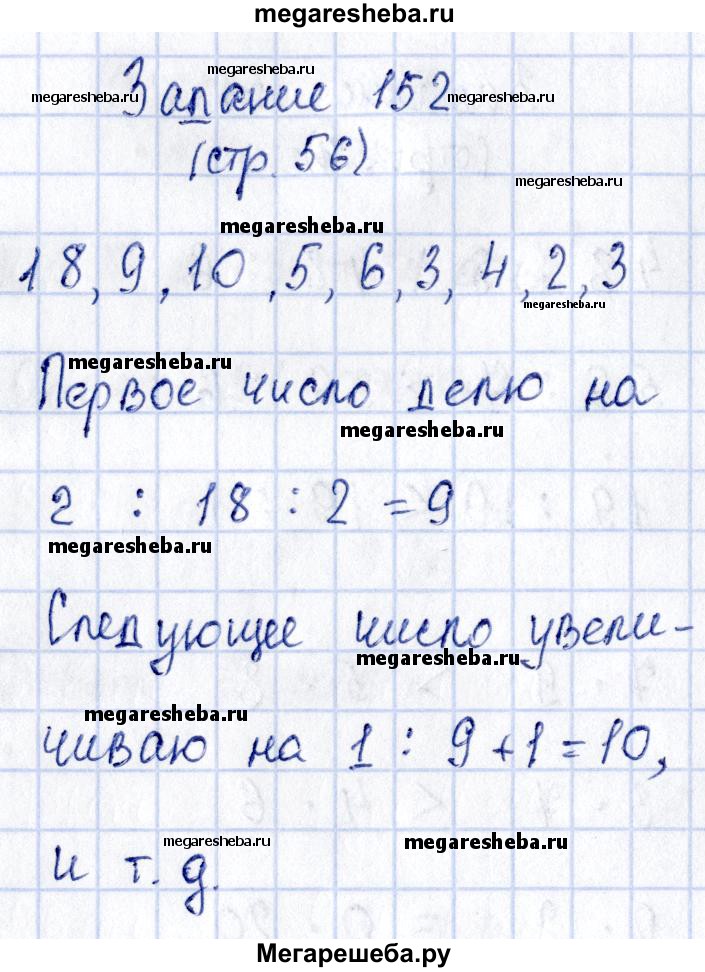 megaresheba.ru
megaresheba.ru
megaresheba.ru
megaresheba.ru
Запание 152
(стр. 56)
megaresheba.ru
megaresheba.ru
18, 9, 10, 5, 6, 3, 4, 2, 3
megaresheba.ru
megaresheba.ru
Первое число делю на
megaresheba.ru
2 : 18 : 2 = 9
megaresheba.ru
Следующее число увели-
megaresheba.ru
megaresheba.ru
чиваю на 1 : 9 + 1 = 10,
megaresheba.ru
megaresheba.ru
и т. д.
Мегарешеба.ру